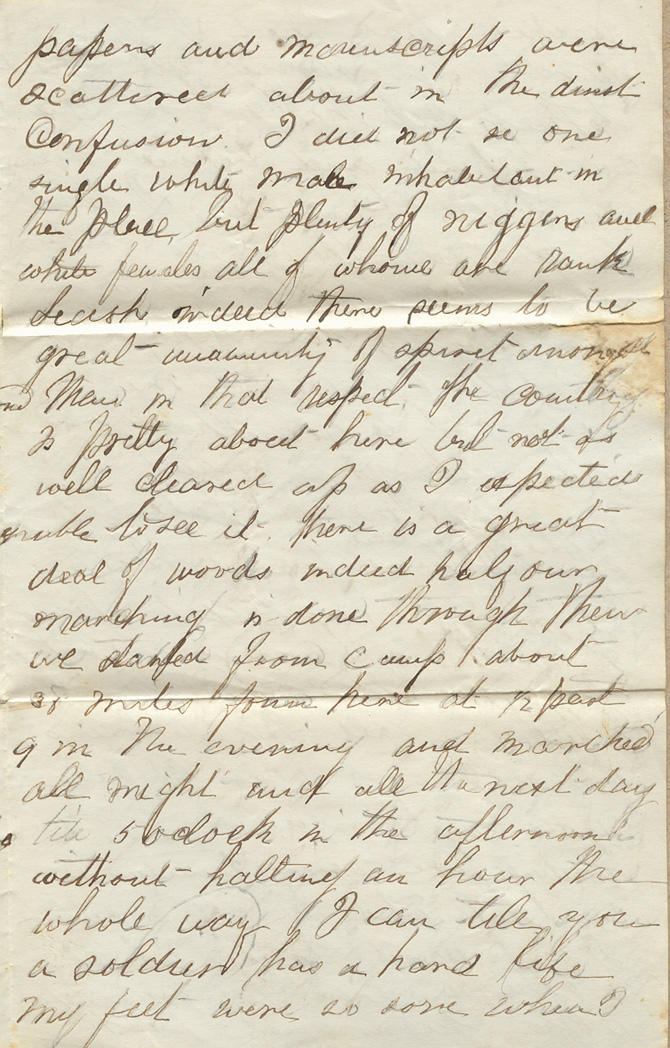 papers and manuscripts were
scattered about in the dirist
Confusion. I did not se one
single white male inhabitant in
the place, but plenty of niggers and
white females all of whome are rank
Secish indeed there seems to be
great unanimity of spirit amongst
them in that respect. The country
is pretty about here but not as
well cleared up as I expected
to see it. there is a great
deal of woods indeed half our
marching is done through them
we started from camp about
miles from here at ½ past
9 in the evening and marched
all night and all the next day
till 5 oclock in the afternoon
without halting an hour the
whole way I can tell you
a soldier has a hard life
my feet were so sore when I